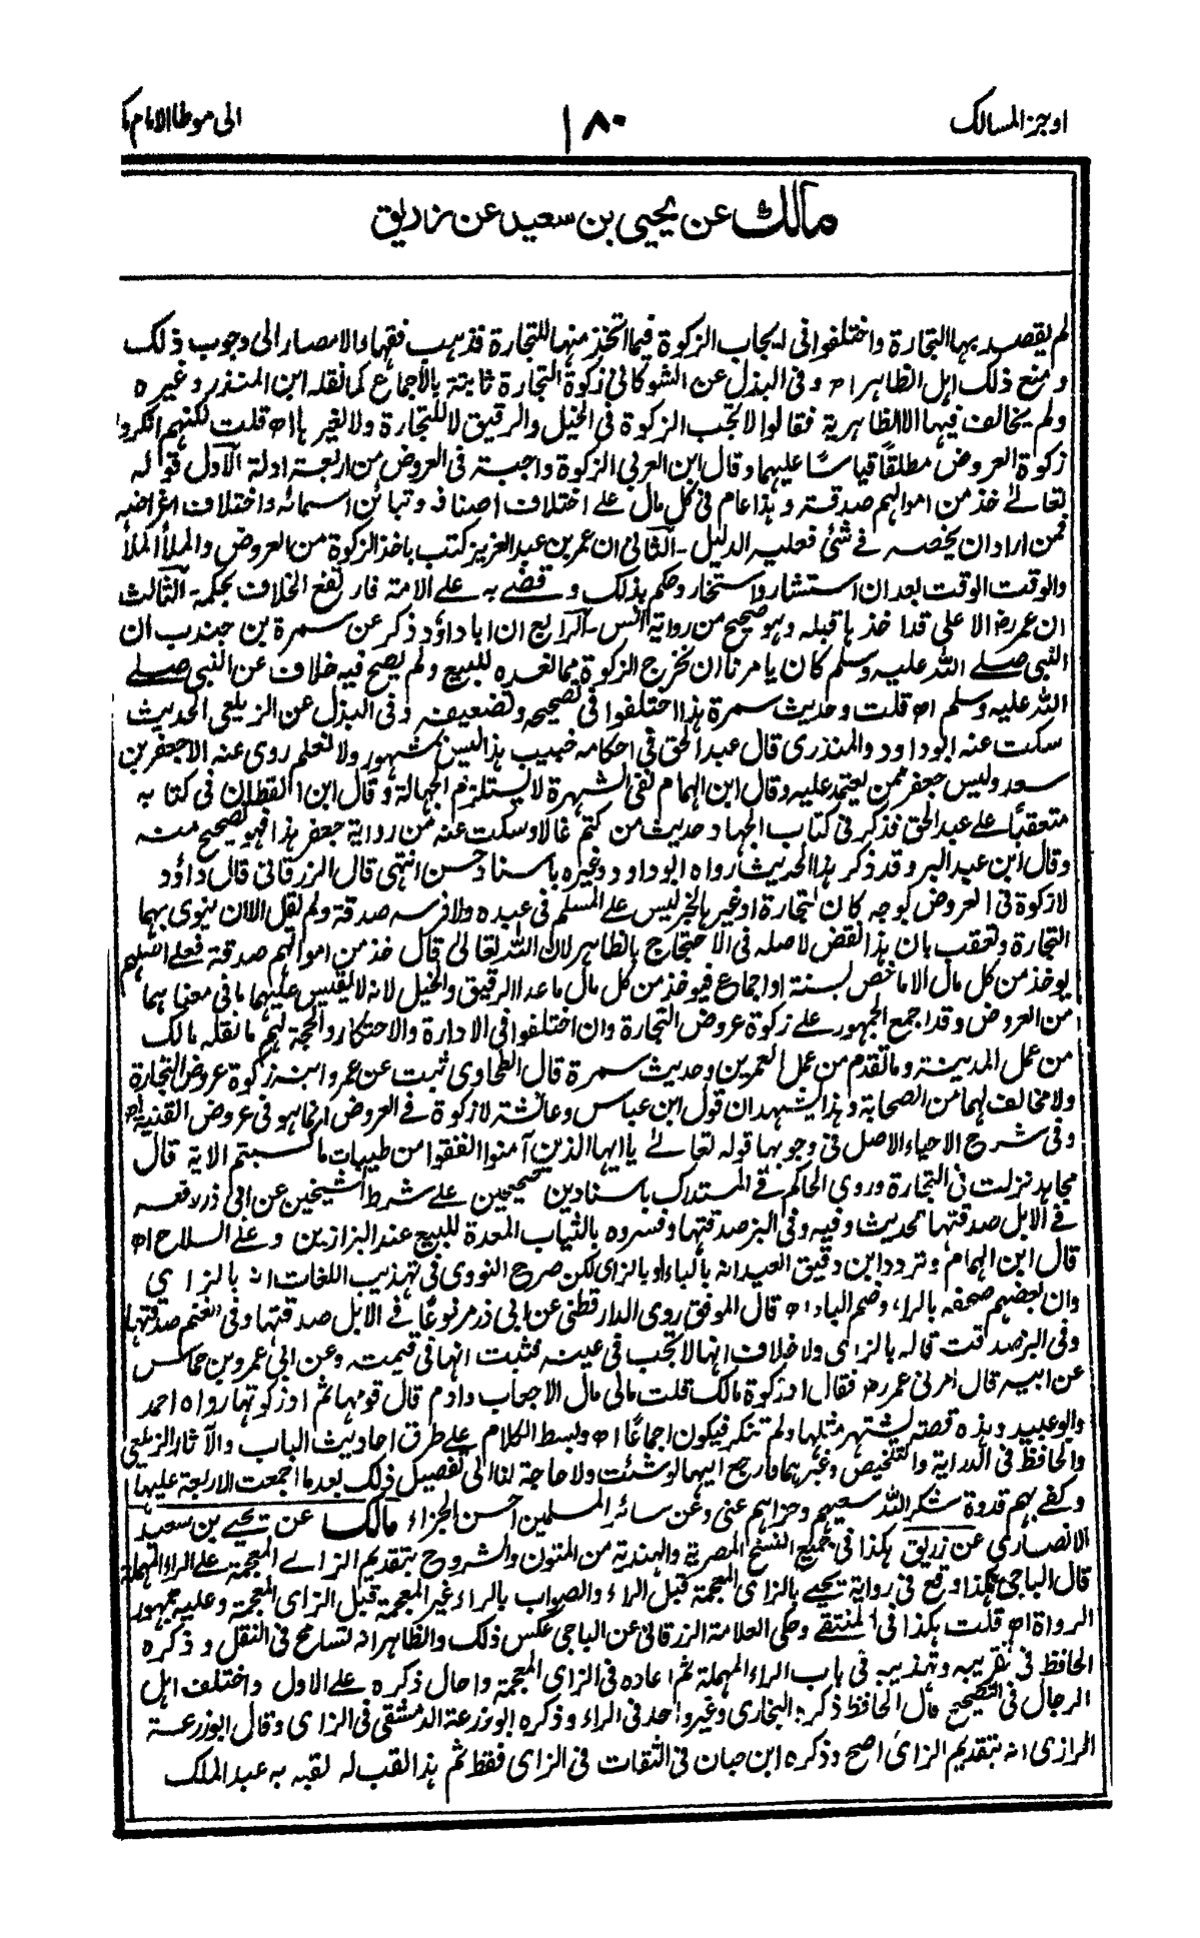 اوجز المسالك
١٨٠
الى موطا الامام ما
مالك عن يحيى بن سعيد عن زريق
لم يقصد بها التجارة واختلفوا فى ايجاب الزكوة فيما اتخذ منها للتجارة فذهب فقهاء الامصار الى وجوب ذلك
ومنع ذلك اهل الظاهر اه وفى البذل عن الشوكانى زكوة التجارة ثابتة بالاجماع كما نقله ابن المنذر وغيره
ولم يخالف فيها الا الظاهرية فقالوا لا تجب الزكوة فى الخيل والرقيق لا للتجارة ولا لغيرها اه قلت لكنهم انكروا
زكوة العروض مطلقاً قياسًا عليهما وقال ابن العربى الزكوة واجبة فى العروض من اربعة ادلة الاول قوله
تعالے خذ من اموالهم صدقة وهذا عام فى كل مال علے اختلاف اصنافه وتبائن اسمائه واختلاف اغراضه
فمن اراد ان يخصه فے شئ فعليه الدليل - الثانى ان عمر بن عبد العزيز كتب باخذ الزكوة من العروض والملأ الملأ
والوقت الوقت بعد ان استشار واستخار وحكم بذلك وقضے به علے الامة فارتفع الخلاف بحكمه الثالث
ان عمر رض الاعلى قد اخذها قبله وهو صحيح من رواية انس - الرابع ان ابا داؤد ذكر عن سمرة بن جندب ان
النبى صلے الله عليه وسلم كان يامرنا ان نخرج الزكوة مما نعده للبيع ولم يصح فيه خلاف عن النبى صلے
الله عليه وسلم اه قلت وحديث سمرة هذا اختلفوا فى تصحيحه وتضعيفه وفى البذل عن الزيلعى الحديث
سكت عنه ابو داود والمنذرى قال عبد الحق فى احكامه خبيب هذا ليس بمشهور ولا نعلم روى عنه الا جعفر بن
سعد وليس جعفر ممن يعتمد عليه وقال ابن الهمام نفى الشهرة لا يستلزم الجهالة وقال ابن القطان فى كتابه
متعقباً على عبد الحق فذكر فى كتاب الجهاد حديث من كتم غالا وسكت عنه من رواية جعفر هذا فهو تصحيح منه
وقال ابن عبد البر وقد ذكر هذا الحديث رواه ابو داود وغيره باسناد حسن انتهى قال الزرقانى قال داؤد
لا زكوة فى العروض بوجه كان لتجارة او غيرها لخبر ليس على المسلم فى عبده ولا فرسه صدقة ولم نقل الا ان ينوى بهما
التجارة وتعقب بان هذا نقض لاصله فى الاحتجاج بالظاهر لان الله تعالى قال خذ من اموالهم صدقة فعلى اصلهم
يوخذ من كل مال الا ما خص بسنة او اجماع فيوخذ من كل مال ما عدا الرقيق والخيل لانه لا يقيس عليهما ما فى معناهما
من العروض وقد اجمع الجمهور على زكوة عروض التجارة وان اختلفوا فى الادارة والاحتكار والحجة لهم ما نقله مالك
من عمل المدينة وما تقدم من عمل العمرين وحديث سمرة قال الطحاوى ثبت عن عمر وابنه زكوة عروض التجارة
ولا مخالف لهما من الصحابة وهذا يشهد ان قول ابن عباس وعائشة لا زكوة فے العروض انما هو فى عروض القنية اه
وفى شرح الاحياء الاصل فى وجوبها قوله تعالے يا ايها الذين آمنوا انفقوا من طيبات ما كسبتم الاية قال
مجاهد نزلت فى التجارة وروى الحاكم فے المستدرك باسنادين صحيحين على شرط الشيخين عن ابى ذر رفعه
فے الابل صدقتها الحديث وفيه وفى البز صدقتها وفسروه بالثياب المعدة للبيع عند البزازين وعلى السلاح اه
قال ابن الهمام وتردد ابن دقيق العيد انه بالباء او بالزاى لكن صرح النووى فى تهذيب اللغات انه بالزاى
وان بعضهم صحفه بالراء وضم الباء اه قال الموفق روى الدارقطنى عن ابى ذر مرفوعًا فے الابل صدقتها وفى الغنم صدقتها
وفى البز صدقته قاله بالزاى ولا خلاف انها لا تجب فى عينه فثبت انها فى قيمته وعن ابى عمرو بن حماس
عن ابيه قال امرنى عمر رض فقال اد زكوة مالك قلت مالى مال الا جعاب وادم قال قومها ثم اد زكوتها رواه احمد
وابو عبيد وهذه قصة يشتهر مثلها ولم تنكر فيكون اجماعًا اه وبسط الكلام على طرق احاديث الباب والآثار الزيلعى
والحافظ فى الدراية والتلخيص وغيرهما فارجع اليهما لو شئت ولا حاجة لنا الى تفصيل ذلك بعد ما اجمعت الاربعة عليها
وكفے بهم قدوة شكر الله سعيهم وجزاهم عنى وعن سائر المسلمين احسن الجزاء مالك عن يحيے بن سعيد
الانصارى عن زريق هكذا فى جميع النسخ المصرية والهندية من المتون والشروح بتقديم الزاے المعجمة على الراء المهملة
قال الباجى هكذا وقع فى رواية يحيے بالزاى المعجمة قبل الراء والصواب بالراء غير المعجمة قبل الزاى المعجمة وعليه جمهور
الرواة اه قلت هكذا فى المنتقے وحكى العلامة الزرقانى عن الباجى عكس ذلك والظاهر انه تسامح فى النقل وذكره
الحافظ فى تقريبه وتهذيبه فى باب الراء المهملة ثم اعاده فى الزاى المعجمة واحال ذكره علے الاول واختلف اهل
الرجال فى التصحيح قال الحافظ ذكره البخارى وغير واحد فى الراء وذكره ابو زرعة الدمشقى فى الزاى وقال ابو زرعة
الرازى انه بتقديم الزاى اصح وذكره ابن حبان فى الثقات فى الزاى فقط ثم هذا لقب له لقبه به عبد الملك